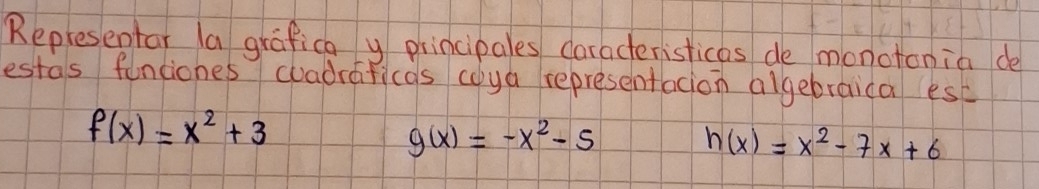 Representar la gráfica y principales caracteristicas de monotonía de
estas funciones cuadráticas cuya representación algebraica es:
f(x) = x² + 3 g(x) = -x² - 5 h(x) = x² - 7x + 6